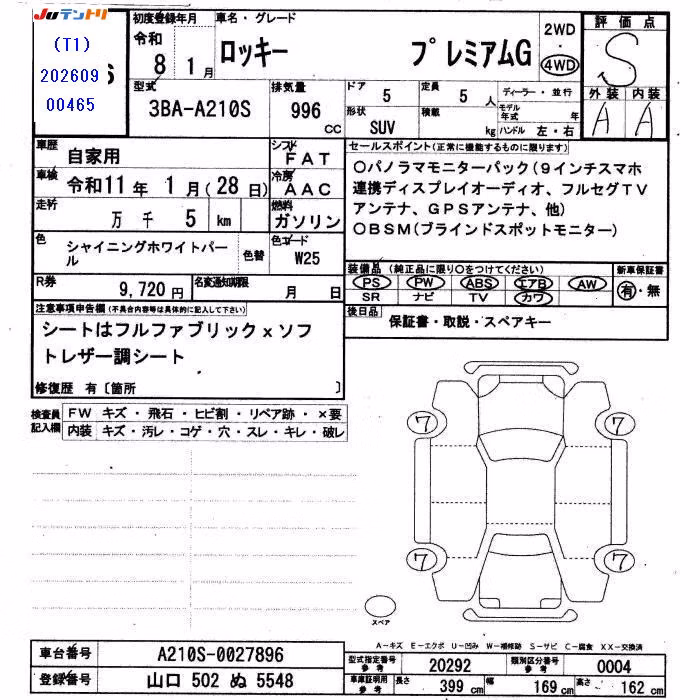 JUテントリ
(T1)
202609
00465
S
初度登録年月
令和
8 1月
車名・グレード
ロッキー プレミアムG
2WD
・
4WD
評価点
S
外装 内装
A A
型式
3BA-A210S
排気量
996
CC
ドア
5
定員
5 人
形状
SUV
積載
kg
ディーラー・並行
モデル年式 年
ハンドル 左・右
車歴
自家用
シフト
FAT
車検
令和11年 1月(28日)
冷房
AAC
走行
万 千 5 km
燃料
ガソリン
色
シャイニングホワイトパー
ル
色替
色コード
W25
R券
9,720円
名変通知期限
月 日
セールスポイント(正常に機能するものに限ります)
○パノラマモニターパック(9インチスマホ
連携ディスプレイオーディオ、フルセグTV
アンテナ、GPSアンテナ、他)
○BSM(ブラインドスポットモニター)
装備品(純正品に限り○をつけてください)
PS PW ABS エアB AW
SR ナビ TV カワ
新車保証書
有・無
後日品
保証書・取説・スペアキー
注意事項申告欄(不具合内容等は具体的に記入して下さい)
シートはフルファブリックxソフ
トレザー調シート
修復歴 有〔箇所 〕
検査員
記入欄
FW キズ・飛石・ヒビ割・リペア跡・×要
内装 キズ・汚レ・コゲ・穴・スレ・キレ・破レ
7 7
7 7
スペア
A-キズ E-エクボ U-凹み W-補修跡 S-サビ C-腐食 XX-交換済
車台番号
A210S-0027896
登録番号
山口 502 ぬ 5548
型式指定番号
参考
20292
類別区分番号
参考
0004
車庫証明用
参考
長さ
399 cm
幅
169 cm
高さ
162 cm